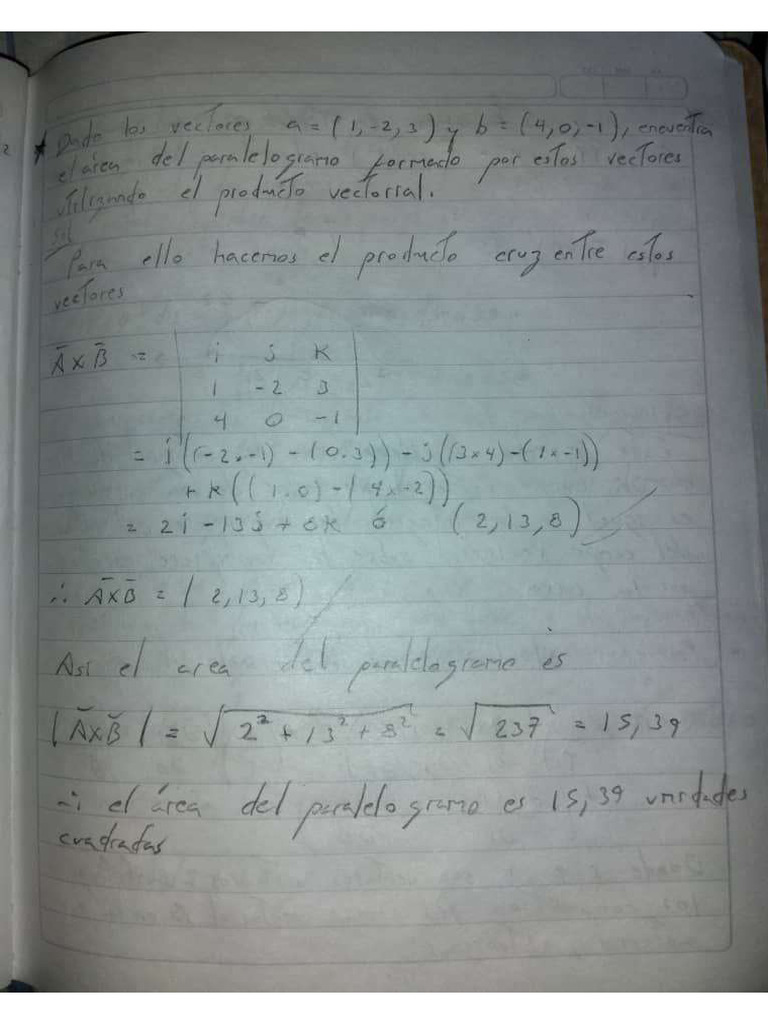 * Dado los vectores a = (1,-2,3) y b = (4,0,-1), encuentra
el área del paralelogramo formado por estos vectores
utilizando el producto vectorial.
Sol
Para ello hacemos el producto cruz entre estos
vectores
A̅xB̅ = | i j K |
| 1 -2 3 |
| 4 0 -1 |
= i((-2×-1) - (0.3)) - j((3×4)-(1×-1))
+ K((1.0)-(4×-2))
= 2i - 13j + 8K ó (2,13,8)
∴ A̅xB̅ = (2,13,8)
Así el area del paralelogramo es
|A̅xB̅| = √(2² + 13² + 8²) = √237 = 15,39
∴ el área del paralelogramo es 15,39 unidades
cuadradas